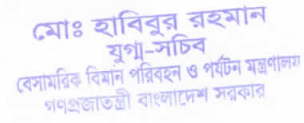 মোঃ হাবিবুর রহমান
যুগ্ম-সচিব
বেসামরিক বিমান পরিবহন ও পর্যটন মন্ত্রণালয়
গণপ্রজাতন্ত্রী বাংলাদেশ সরকার